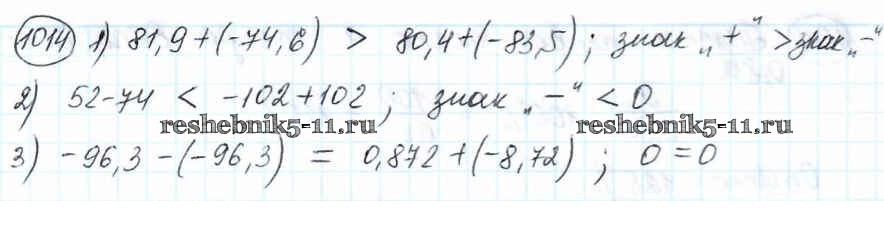 1014 1) 81,9+(-74,6) > 80,4+(-83,5); знак „+“ > знак „-“
2) 52-74 < -102+102; знак „-“ < 0
reshebnik5-11.ru reshebnik5-11.ru
3) -96,3-(-96,3) = 0,872+(-8,72); 0=0